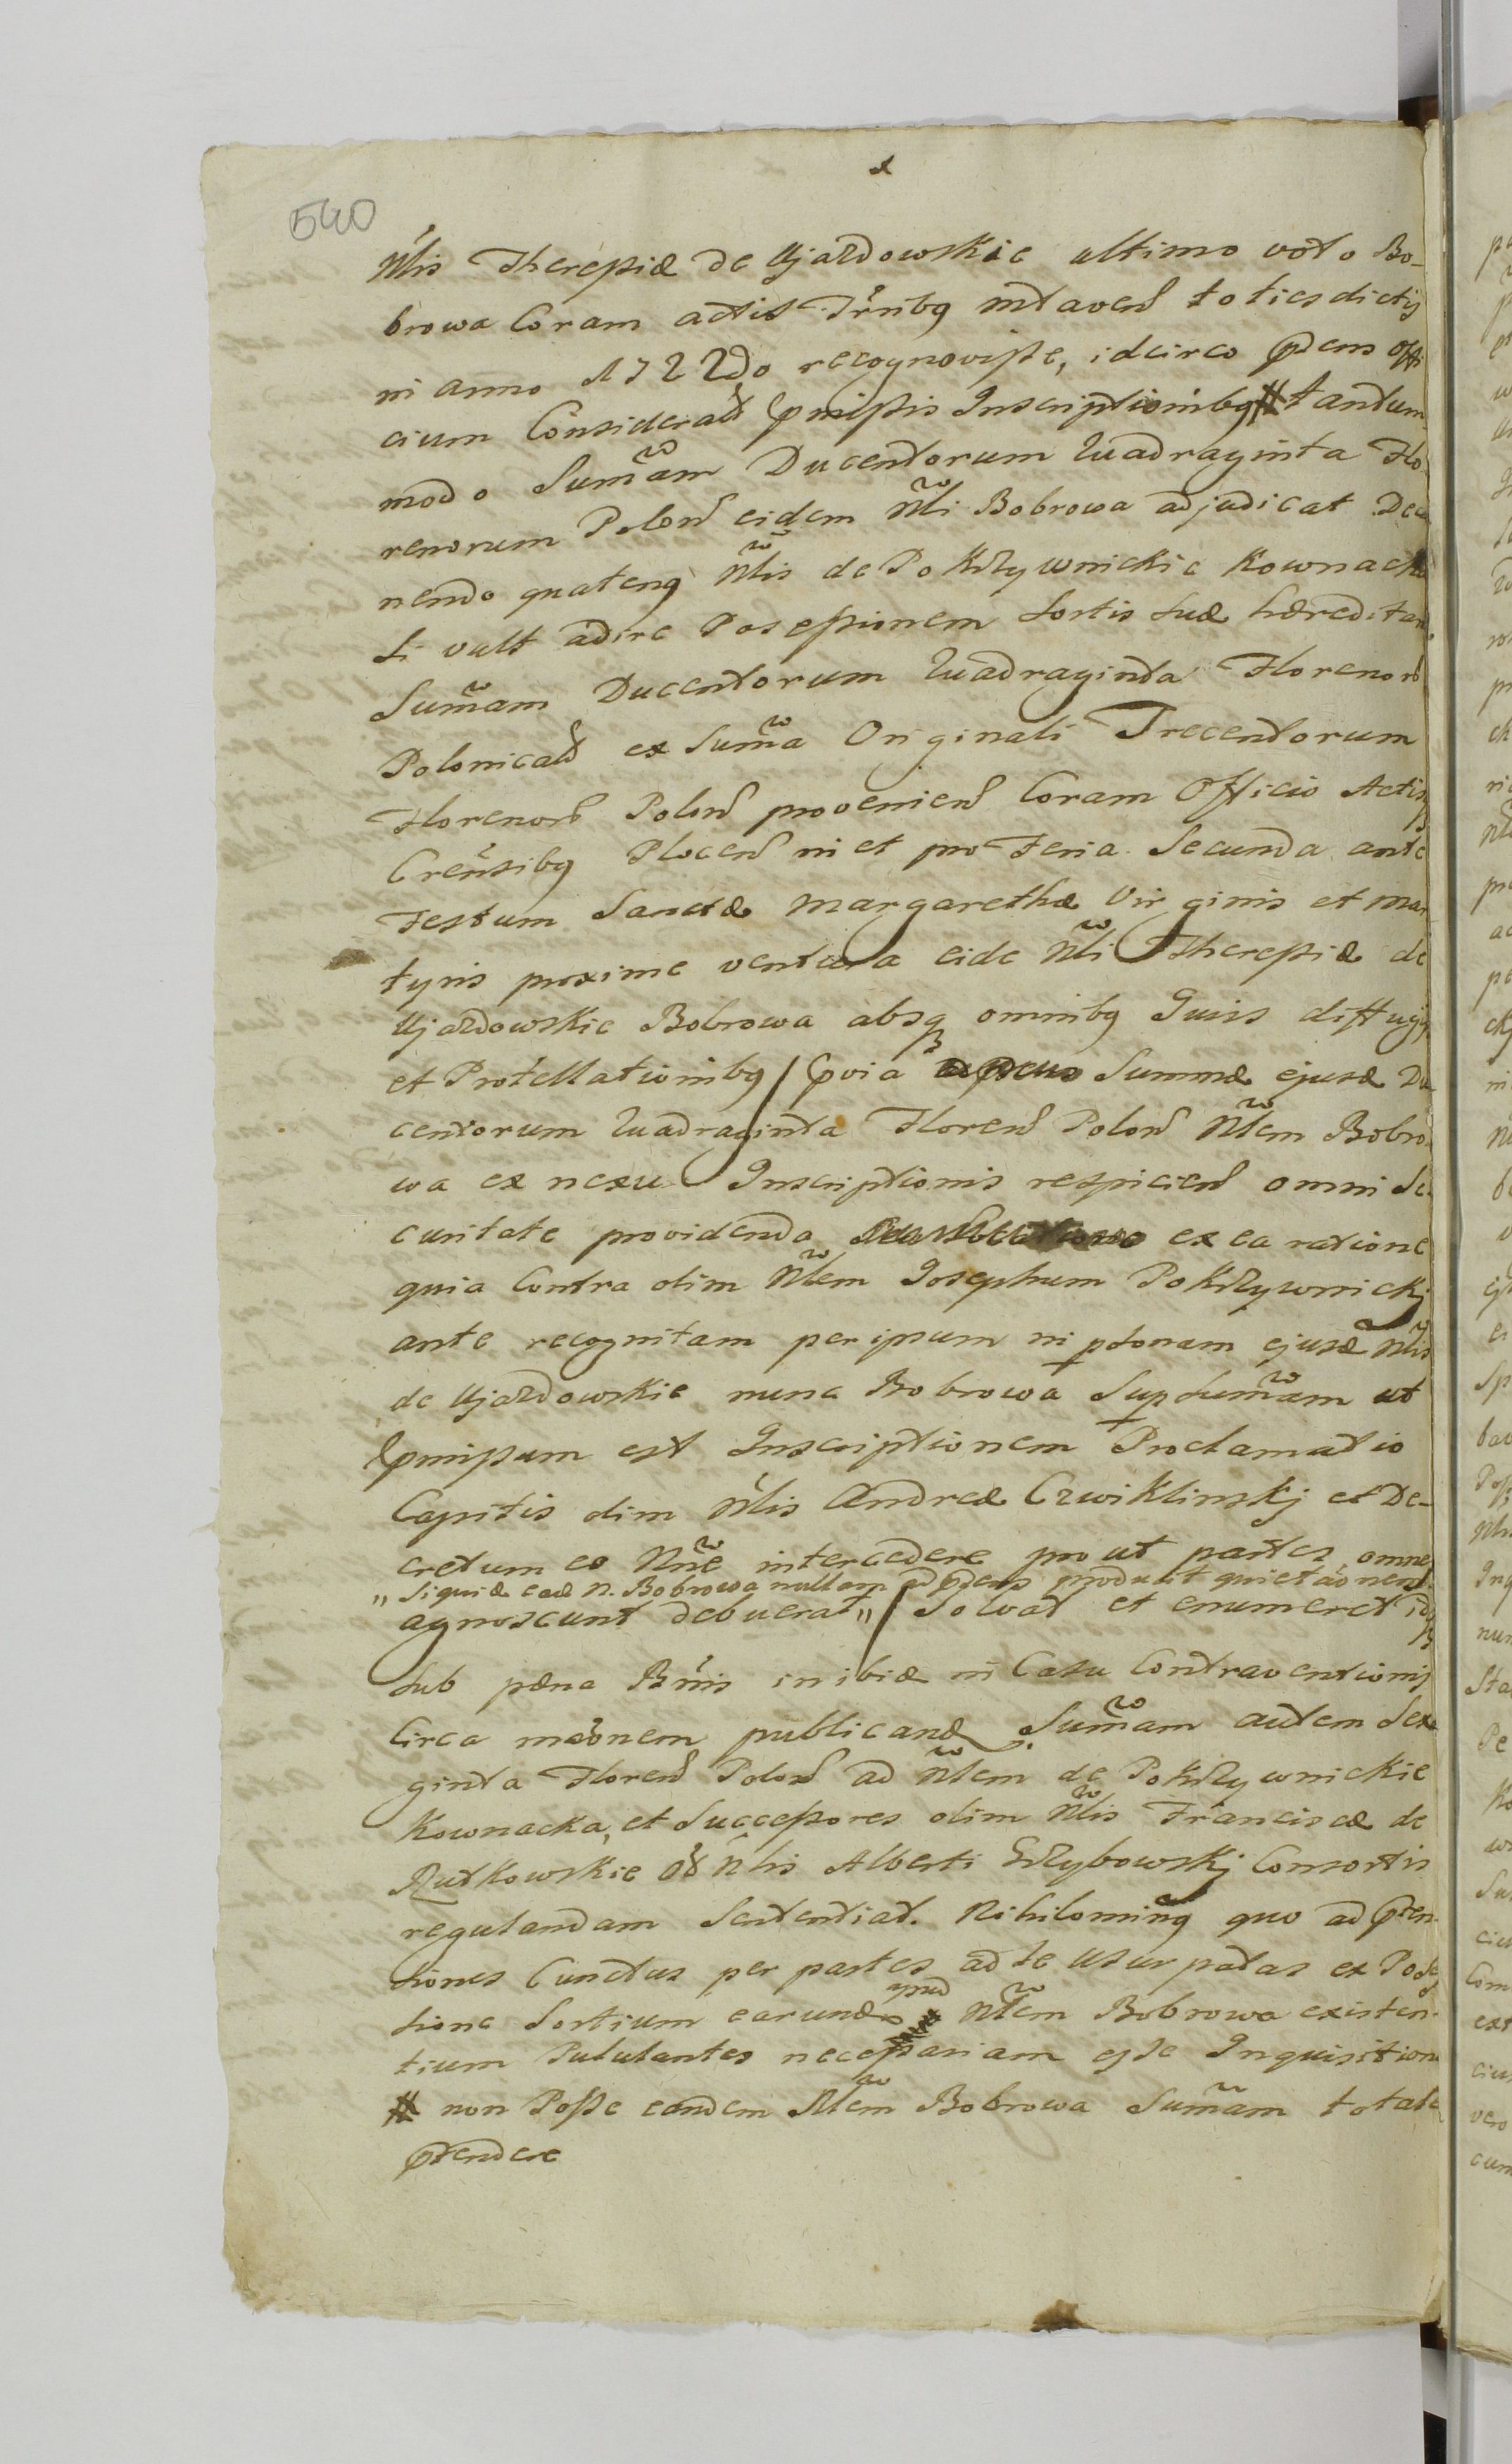 540
Nlis Theressiæ de Ujazdowskie ultimo voto Bo-
browa Coram actis Trribg mlaven toties dictis
in anno 1722do recognovisse, idcirco pdens offi
cium Considerat pmissis Inscriptionibg # tantum
modo Sumam Ducentorum Quadraginta Flo
renorum Polon eidem Nli Bobrowa adjudicat Decer
nendo quateng Nlis de Pokrzywnickie Kownacka
si vult adire Possessionem Sortis suæ hæreditar
Sumam Ducentorum Quadraginta Florenor
Polonical ex Suma Originali Trecentorum
Florenor Polon provenien Coram Officio Actisq
Crensibg Plocen in et pro Feria Secunda ante
Festum Sanctæ Margarethæ Virginis et Mar
tyris proxime ventura eide Nli Theressiæ de
Ujazdowskie Bobrowa absq omnibg Juris diffugijs
et Protestationibg / qvia Summæ ejusd Du
centorum Quadraginta Floren Polon Nlem Bobro
wa ex nexu Inscriptionis respicien omni Se
curitate providenda ex ea ratione
quia Contra olim Nlem Josephum Pokrzywnickj
ante recognitam per ipsum in psonam ejusd Nlis
de Ujazdowskie nunc Bobrowa Sup Sumam ut
pmissum est Inscriptionem Proclamatio
Capitis olim Nlis Andreæ Czwiklinskj et De-
cretum eo Nne intercedere prout partes omnes
„ Siquid ead N. Bobrowa nullam ad pdens produxit quietaonem
agnoscunt debuerat „ / Solvat et enumeret idq
sub pæna Bnis inibid in Casu Contraventionis
Circa monem publicand. Sumam autem Sexa
ginta Floren Polon ad Nlem de Pokrzywnickie
Kownacka, et Successores olim Nlis Franciscæ de
Rutkowskie Nlis Alberti Grzybowskj Consortis
regulandam Sententiat. Nihiloming quo ad pten
siones Cunctas per partes ad se usurpatas ex Posses
sione Sortium earund apud Nlem Bobrowa existen-
tium Pululantes necessariam esse Inquisition
# non Posse eandem Nlem Bobrowa Sumam totale
ptendere